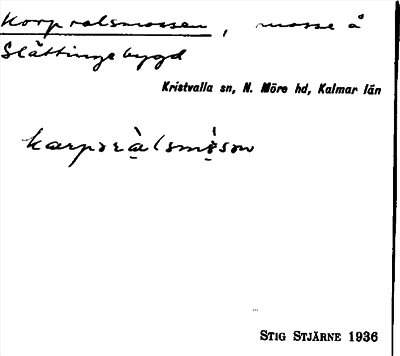 Korpralsmossen, mosse å
Slättingebygd
Kristvalla sn, N. Möre hd, Kalmar län
STIG STJÄRNE 1936